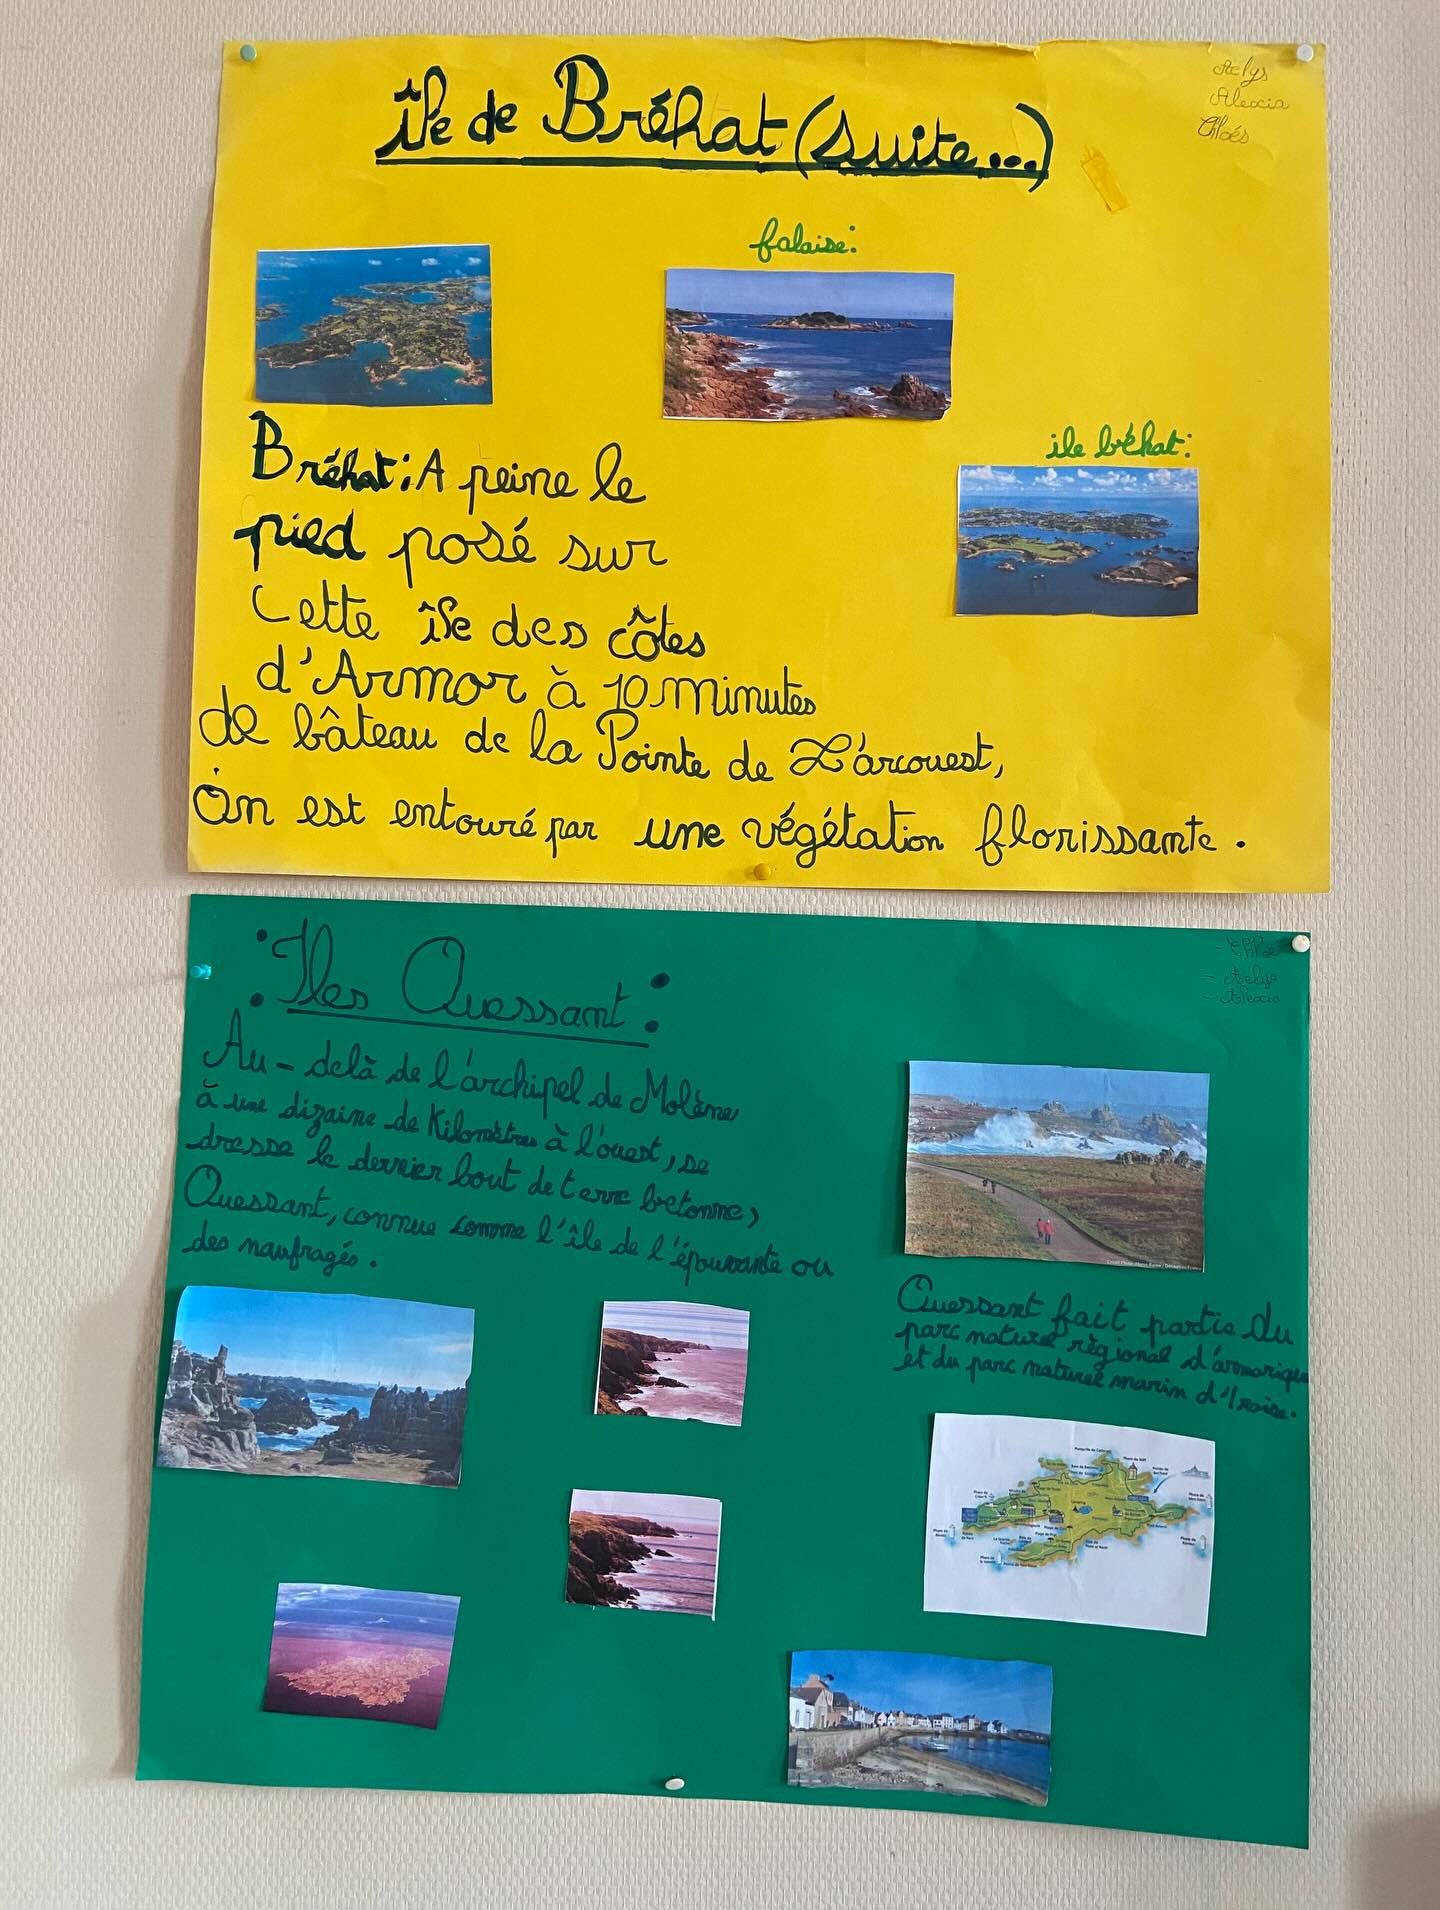 île de Bréhat (suite...)
Aelys
Alexia
Chloés
falaise:
ile béhat:
Bréhat: A peine le
pied posé sur
Cette île des côtes
d'Armor à 10 minutes
de bâteau de la Pointe de L'árcouest,
On est entouré par une végétation florissante.
: Iles Ouessant :
- Chloé
- Aelys
- Alexia
Au-delà de l'archipel de Molène
à une dizaine de Kilomètres à l'ouest, se
dresse le dernier bout de terre betonne,
Ouessant, connue comme l'île de l'épouvante ou
des naufragés.
Ouessant fait partie du
parc naturel règional d'armorique
et du parc naturel marin d'Iroise.